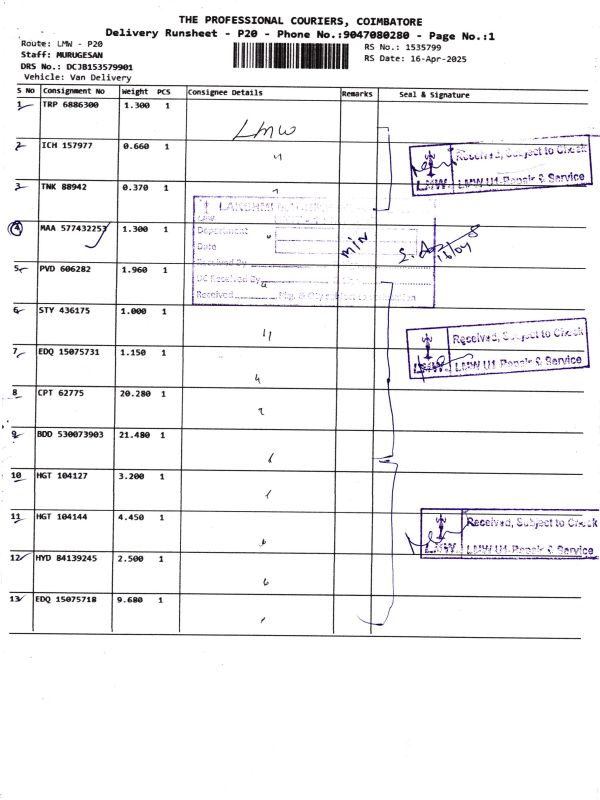 THE PROFESSIONAL COURIERS, COIMBATORE
Delivery Runsheet - P20 - Phone No.:9047080280 - Page No.:1
Route: LMW - P20
Staff: MURUGESAN
DRS No.: DCJB153579901
Vehicle: Van Delivery
RS No.: 1535799
RS Date: 16-Apr-2025
S No Consignment No Weight PCS Consignee Details Remarks Seal & Signature
1 TRP 6886300 1.300 1 LMW
2 ICH 157977 0.660 1 "
Received, Subject to Check
LMW LMW U1-Repair & Service
3 TNK 88942 0.370 1 "
4 MAA 577432253 1.300 1 min
16/04
Department
Date
Received By
DC Received By
Received
5 PVD 606282 1.960 1
6 STY 436175 1.000 1 "
Received, Subject to Check
LMW LMW U1-Repair & Service
7 EDQ 15075731 1.150 1
8 CPT 62775 20.280 1
9 BDD 530073903 21.480 1
10 HGT 104127 3.200 1
11 HGT 104144 4.450 1
Received, Subject to Check
LMW LMW U1-Repair & Service
12 HYD 84139245 2.500 1
13 EDQ 15075718 9.680 1